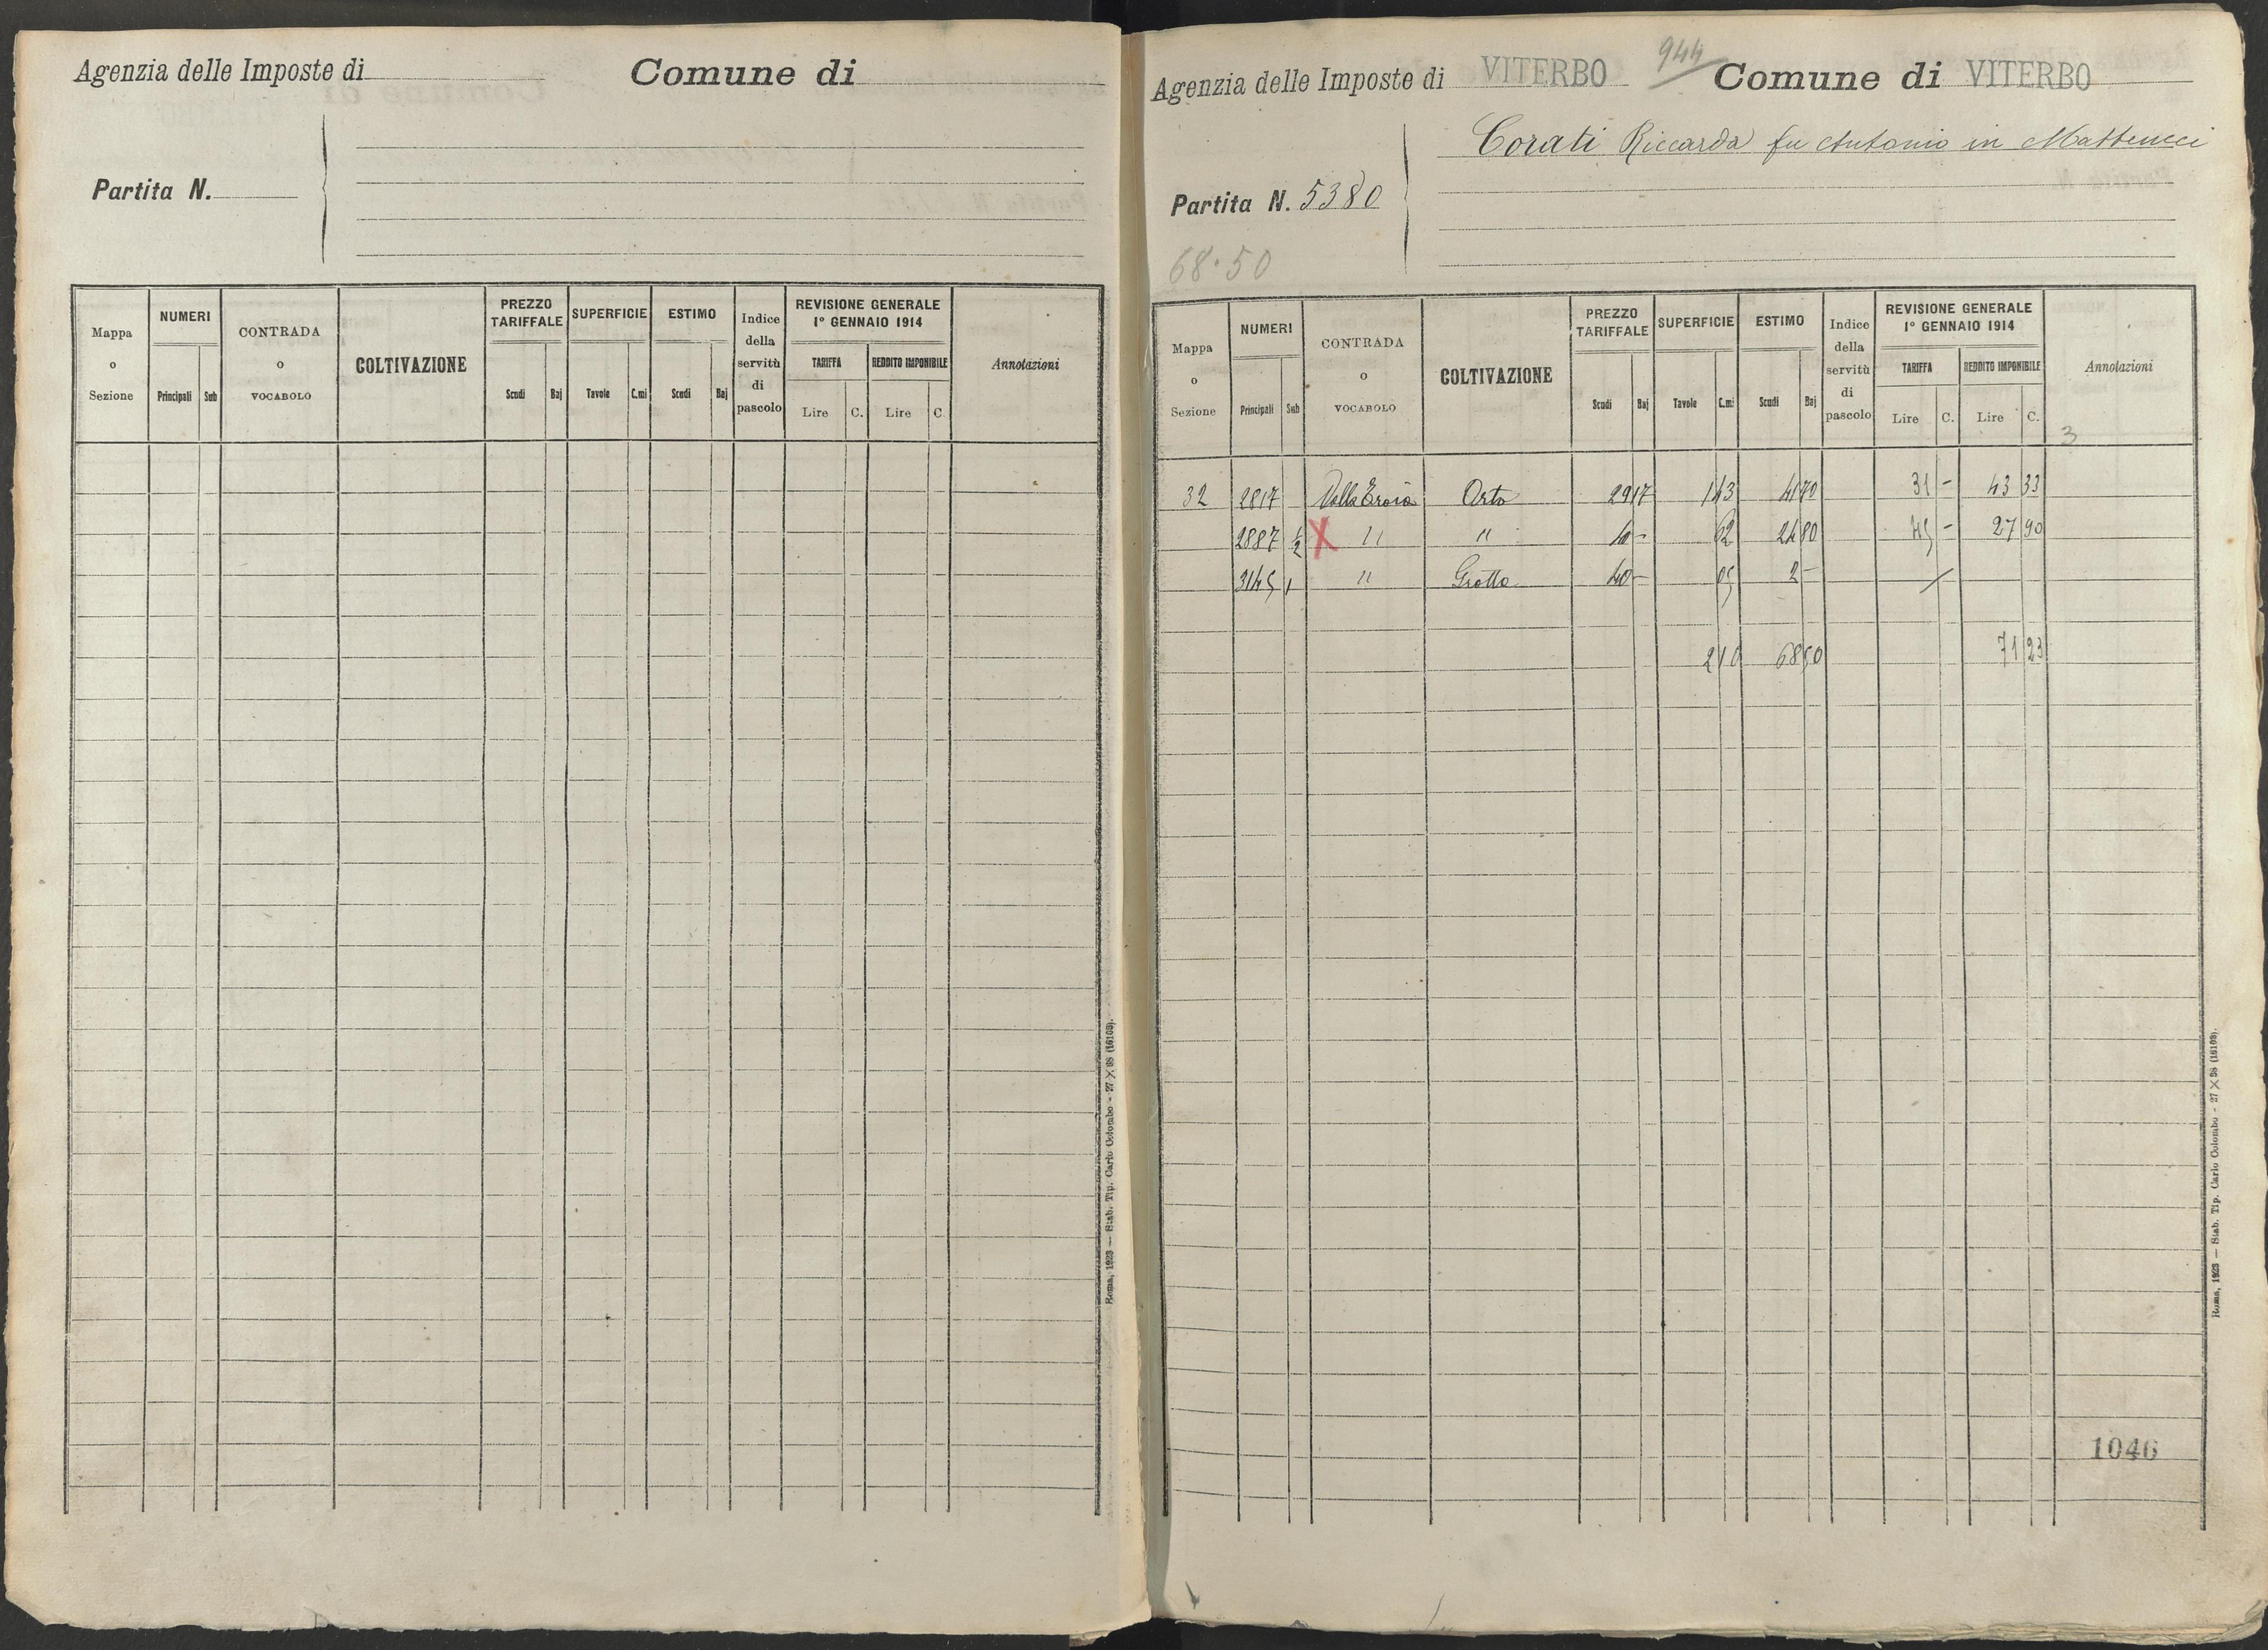 Agenzia delle Imposte di Comune di
Partita N.
Mappa o Sezione NUMERI Principali Sub CONTRADA o VOCABOLO COLTIVAZIONE PREZZO TARIFFALE Scudi Baj SUPERFICIE Tavole C.mi ESTIMO Scudi Baj Indice della servitù di pascolo REVISIONE GENERALE 1° GENNAIO 1914 TARIFFA Lire C. REDDITO IMPONIBILE Lire C. Annotazioni
Roma, 1923 — Stab. Tip. Carlo Colombo - 27 × 38 (16108).
944
Agenzia delle Imposte di VITERBO Comune di VITERBO
Corati Riccarda fu Antonio in Matteucci
Partita N. 5380
68.50
Mappa o Sezione NUMERI Principali Sub CONTRADA o VOCABOLO COLTIVAZIONE PREZZO TARIFFALE Scudi Baj SUPERFICIE Tavole C.mi ESTIMO Scudi Baj Indice della servitù di pascolo REVISIONE GENERALE 1° GENNAIO 1914 TARIFFA Lire C. REDDITO IMPONIBILE Lire C. Annotazioni
3
32 2817 Orto 29 17 1 43 41 70 31 - 43 33
2887 1/2 X " " 40 - 62 24 80 45 - 27 90
3145 1 " Grotta 40 - 05 2 - /
2 10 68 50 71 23
1046
Roma, 1923 — Stab. Tip. Carlo Colombo - 27 × 38 (16108).